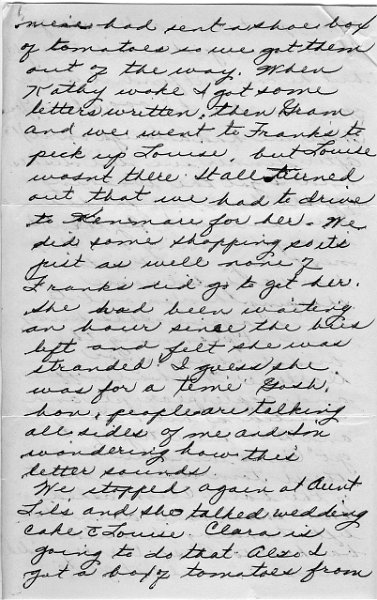 meier had sent a shoe box
of tomatoes so we got them
out of the way. When
Kathy woke I got some
letters written, then Gram
and we went to Franks to
pick up Louise, but Louise
wasnt there. It all turned
out that we had to drive
to Kenmare for her. We
did some shopping so its
just as well none of
Franks did go to get her.
She had been waiting
an hour since the bus
left and felt she was
stranded. I guess she
was for a time. Gosh,
hon, people are talking
all sides of me and Im
wondering how this
letter sounds.
We stopped again at Aunt
Lils and she talked wedding
cake c̄ Louise. Clara is
going to do that. Also I
got a box of tomatoes from